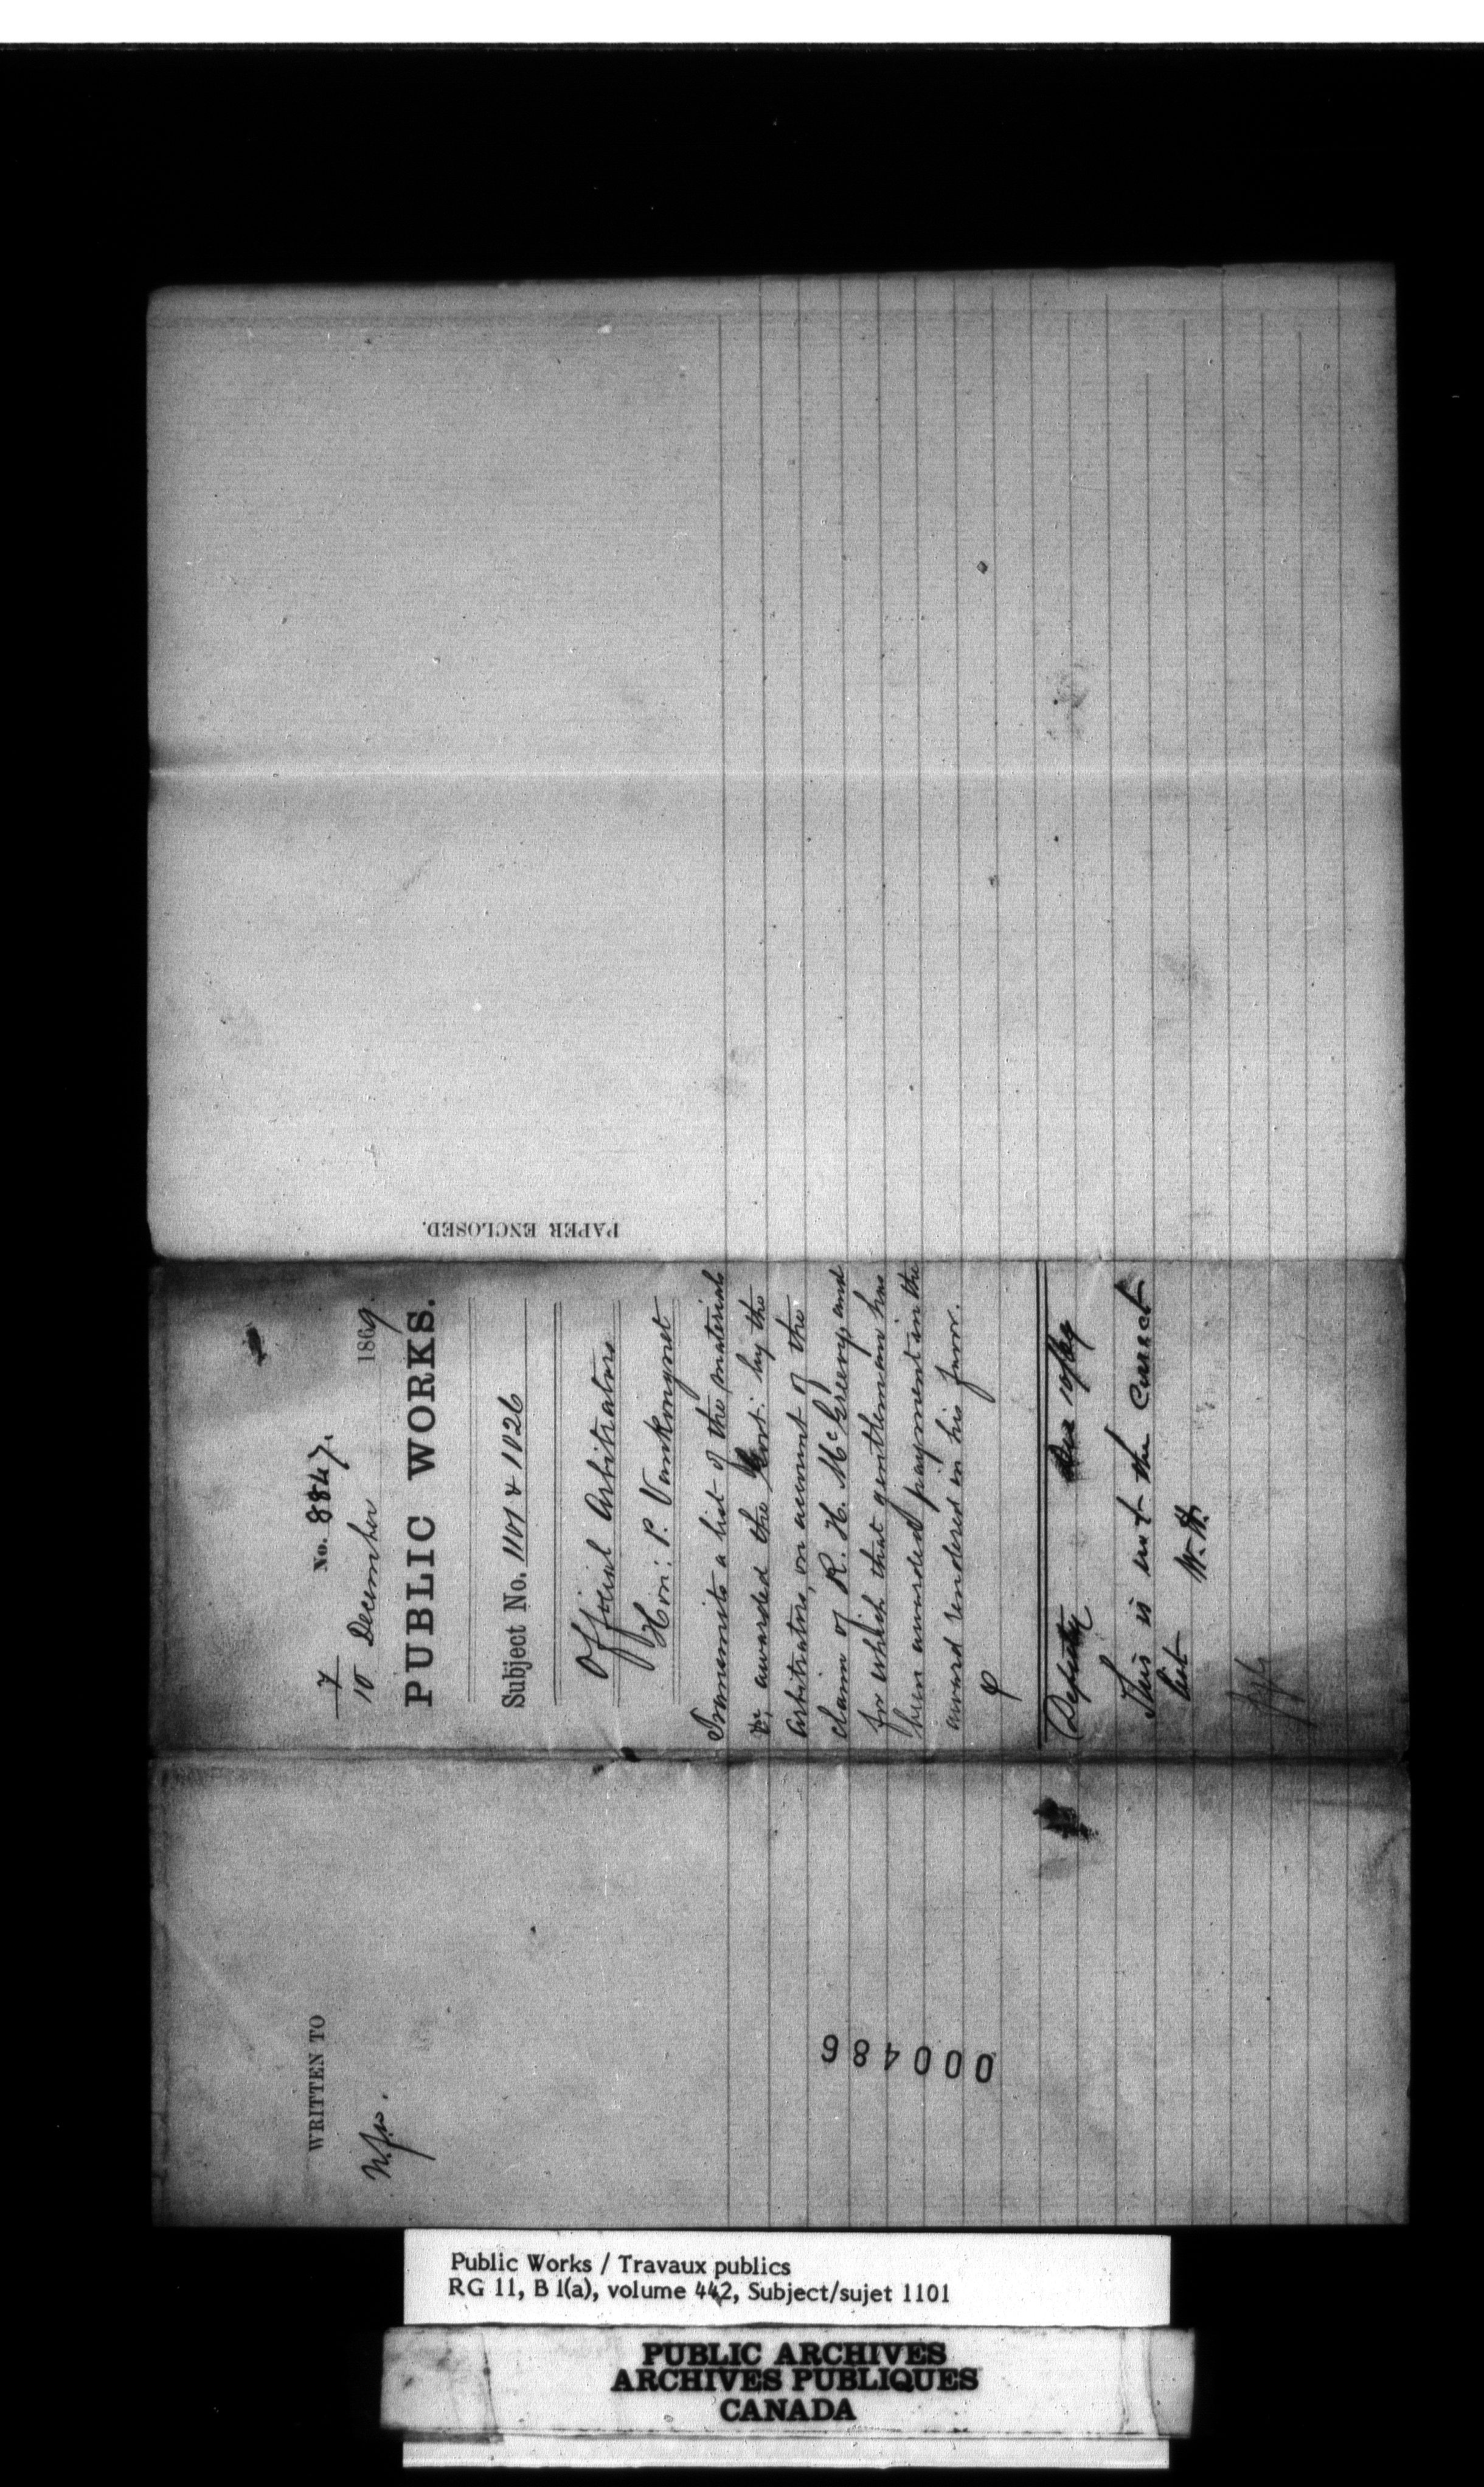 No. 8847.
7
10 December 1869.
PUBLIC WORKS.
Subject No. 1101 & 1026
Official Arbitrators
Hon: P. Vankoughnet
Transmits a list of the materials
&c, awarded the Govt. by the
Arbitrators, on account of the
claim of R. H. McGreevy, and
for which that gentleman has
been awarded payment in the
award rendered in his favor.
Deputy Dec 10/69
This is not the correct
list
W.H.
PAPER ENCLOSED.
WRITTEN TO
000486
Public Works / Travaux publics
RG 11, B 1(a), volume 442, Subject/sujet 1101
PUBLIC ARCHIVES
ARCHIVES PUBLIQUES
CANADA